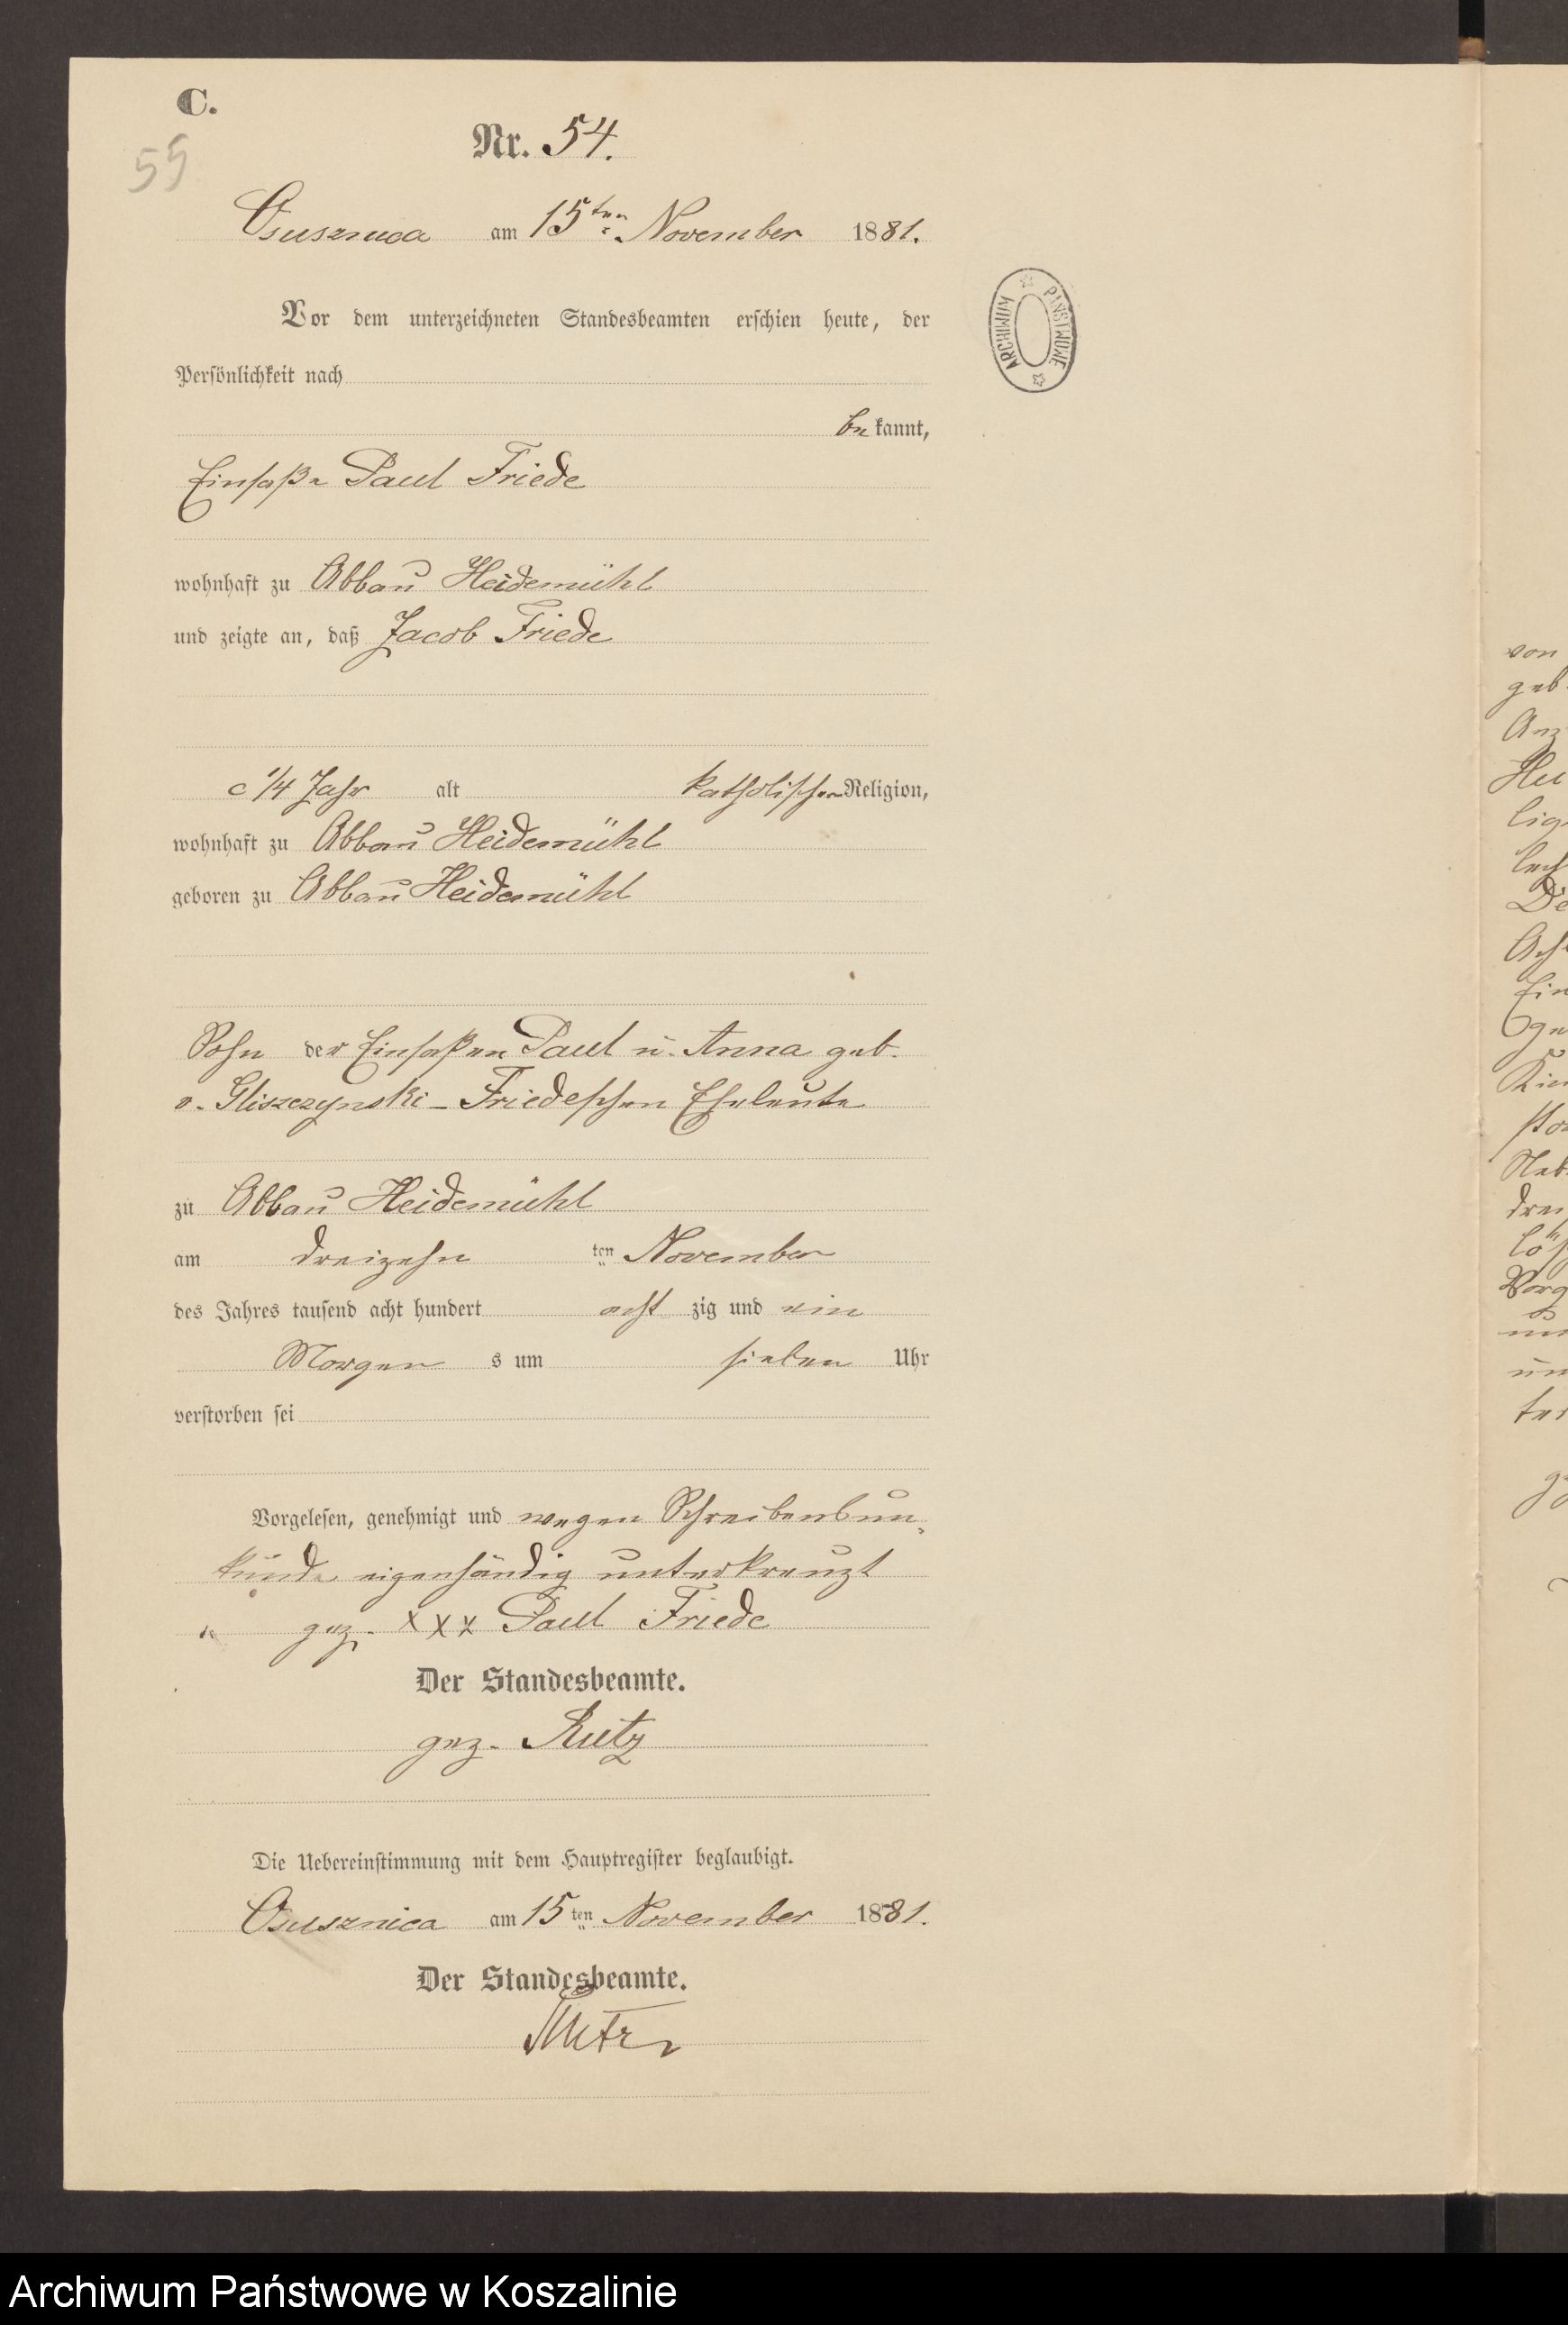 C.
Nr. 54.
55
Osusznica am 15ten November 1881.
Vor dem unterzeichneten Standesbeamten erschien heute, der
Persönlichkeit nach
be kannt,
Einsaße Paul Friede
wohnhaft zu Abbau Heidemühl
und zeigte an, daß Jacob Friede
c 1/4 Jahr alt katholischer Religion,
wohnhaft zu Abbau Heidemühl
geboren zu Abbau Heidemühl
Sohn der Einsaßen Paul u. Anna geb.
v. Gliszczynski - Friedeschen Eheleute
zu Abbau Heidemühl
am dreizehn ten November
des Jahres tausend acht hundert acht zig und ein
Morgen s um sieben Uhr
verstorben sei
Vorgelesen, genehmigt und wegen Schreibensun-
kunde eigenhändig unterkreuzt
gez. XXX Paul Friede
Der Standesbeamte.
gez. Rutz
Die Uebereinstimmung mit dem Hauptregister beglaubigt.
Osusznica am 15 ten November 1881.
Der Standesbeamte.
Rutz
ARCHIWUM PAŃSTWOWE
von
geb.
Die
drei
Vorg
Archiwum Państwowe w Koszalinie